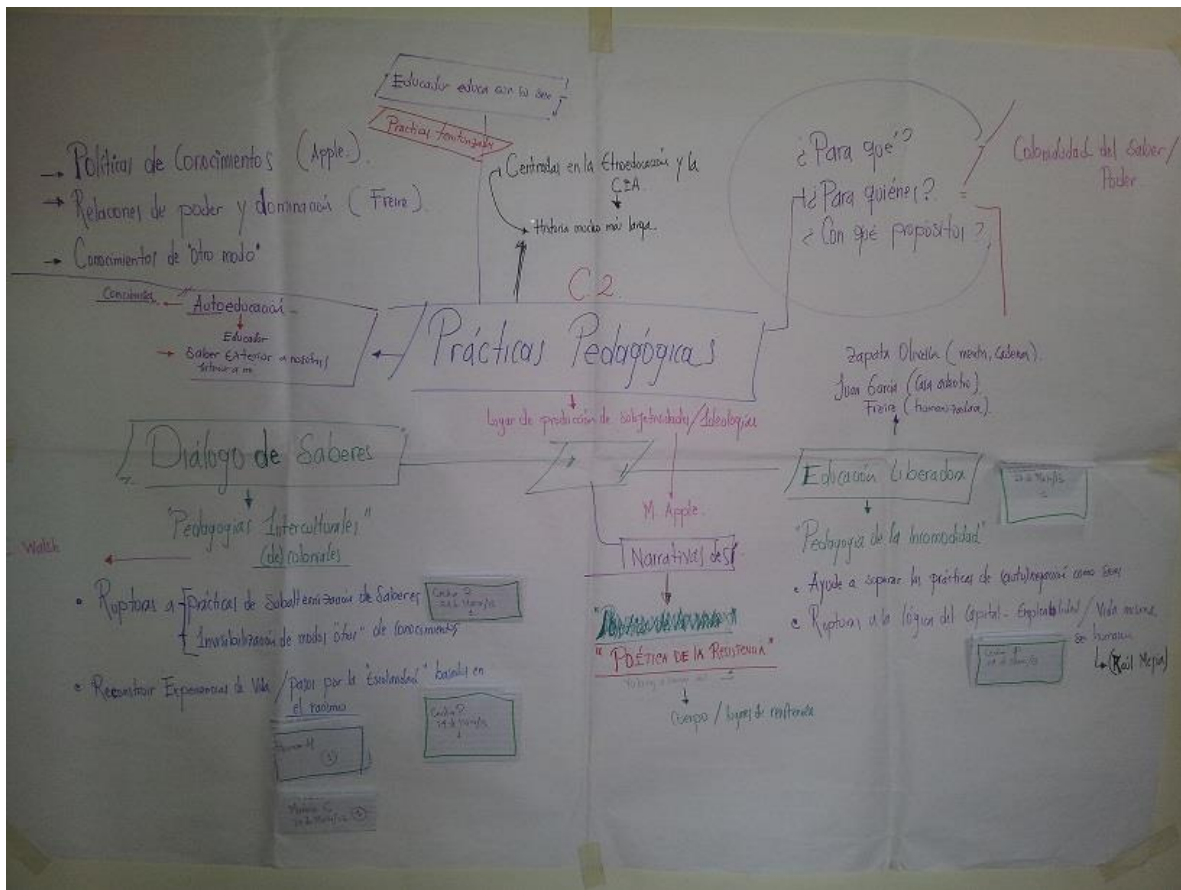 Educador educa con lo
Practicas
→ Políticas de Conocimientos (Apple.).
→ Relaciones de poder y dominación (Freire).
→ Conocimientos de "otro modo"
Centradas en la Etnoeducación y la
CEA.
Historia mucho más larga.
¿Para qué?
¿Para quiénes?
¿Con qué propósitos?
Colonialidad del Saber/
Poder
C2.
Prácticas Pedagógicas
Conciencia ← Autoeducación
Educador
Saber Exterior a nosotros
Lugar de producción de subjetividades/Ideologías
M. Apple.
Zapata Olivella (mente, Cadenas).
Juan García (Casa adentro)
Freire (humanizadora).
Diálogo de Saberes
"Pedagogías Interculturales"
(de)coloniales
Walsh
• Rupturas a prácticas de Subalternización de Saberes
Invisibilización de modos "otros" de conocimientos
• Reconstruir Experiencias de Vida / pasos por la "Escolaridad" basados en
el racismo
Narrativas de Sí
"POÉTICA DE LA RESISTENCIA"
Cuerpo / lugares de resistencia
Educación Liberadora
"Pedagogía de la Incomodidad"
• Ayude a superar las prácticas de (auto)negación como seres
• Rupturas a la lógica del Capital - Empleabilidad / Vida misma
(Raúl Mejía)